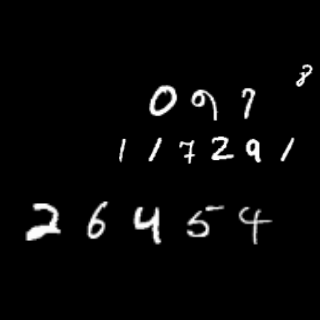 8
097
117291
26454